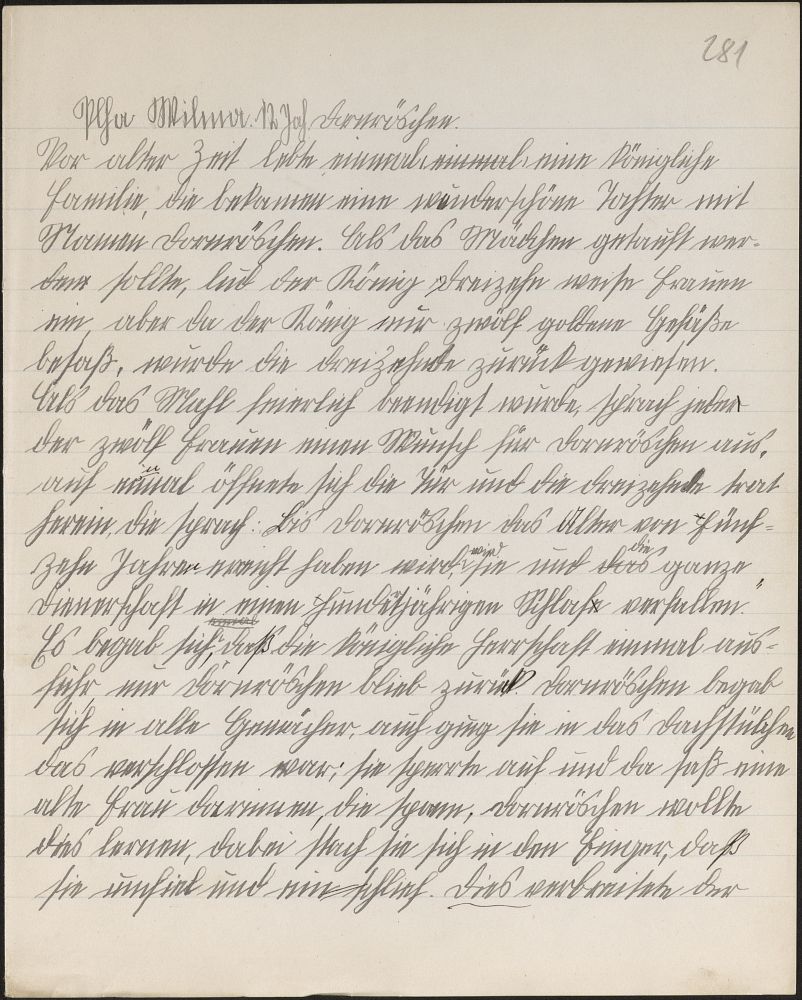 281
Plha Wilma. 12 Jah Dornröschen.
Vor alter Zeit lebte einmal, einmal, eine königliche
Familie, die bekamen eine wunderschöne Tochter mit
Namen Dornröschen. Als das Mädchen getauft wer-
den sollte, lud der König dreizehn weise Frauen
ein, aber da der König nur zwölf goldene Gefäße
besaß, wurde die dreizehnte zurück gewiesen.
Als das Mahl feierlich beendigt wurde, sprach jeder
der zwölf Frauen einen Wunsch für Dornröschen aus,
auf einmal öffnete sich die Tür und die dreizehnte trat
herein, die sprach: Bis Dornröschen das Alter von Fünf=
zehn Jahren erreicht haben wird, wird sie und das die ganze
Dienerschaft in einen hundertjährigen Schlaf verfallen."
Es begab sich, daß die königliche Herrschaft einmal aus=
fuhr nur Dornröschen blieb zurück. Dornröschen begab
sich in alle Gemächer, auch ging sie in das Dachstübchen
das verschlossen war; sie sperrte auf und da saß eine
alte Frau darinnen, die spann, Dornröschen wollte
dies lernen, dabei stach sie sich in den Finger, daß
sie umfiel und einschlief. Dies verbreitete der